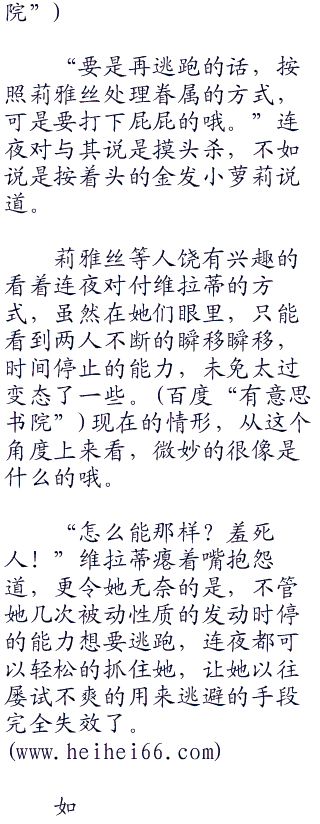 院”)
“要是再逃跑的话，按
照莉雅丝处理眷属的方式，
可是要打下屁屁的哦。”连
夜对与其说是摸头杀，不如
说是按着头的金发小萝莉说
道。
莉雅丝等人饶有兴趣的
看着连夜对付维拉蒂的方
式，虽然在她们眼里，只能
看到两人不断的瞬移瞬移，
时间停止的能力，未免太过
变态了一些。(百度“有意思
书院”)现在的情形，从这个
角度上来看，微妙的很像是
什么的哦。
“怎么能那样？羞死
人！”维拉蒂瘪着嘴抱怨
道，更令她无奈的是，不管
她几次被动性质的发动时停
的能力想要逃跑，连夜都可
以轻松的抓住她，让她以往
屡试不爽的用来逃避的手段
完全失效了。
(www.heihei66.com)
如